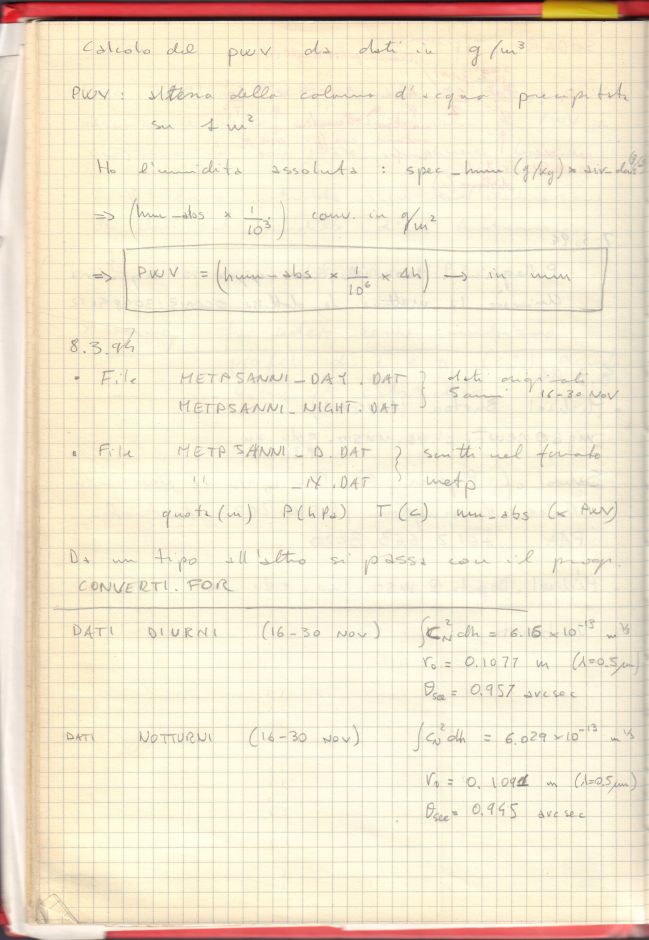 Calcolo del pwv da dati in g/m³
PWV : altezza della colonna d'acqua precipitata
su 1 m²
Ho l'umidità assoluta : spec_hum (g/kg) × air-dens
=> (hum-abs × 1/10³) conv. in g/m²
=> PWV = (hum-abs × 1/10⁶ × Δh) → in mm
8.3.94
• File METP5ANNI_DAY.DAT } dati originali
METP5ANNI_NIGHT.DAT } 5 anni 16-30 NOV
• File METP5ANNI_D.DAT } scritti nel formato
" _N.DAT } metp
quota(m) P(hPa) T(C) um_abs (x PWV)
Da un tipo all'altro si passa con il prog.
CONVERTI.FOR
DATI DIURNI (16-30 NOV) ∫C_N² dh = 6.15 × 10⁻¹³ m^1/3
r₀ = 0.1077 m (λ=0.5 μm)
θ_see = 0.957 arcsec
DATI NOTTURNI (16-30 NOV) ∫C_N² dh = 6.029 × 10⁻¹³ m^1/3
r₀ = 0.1091 m (λ=0.5 μm)
θ_see = 0.945 arcsec